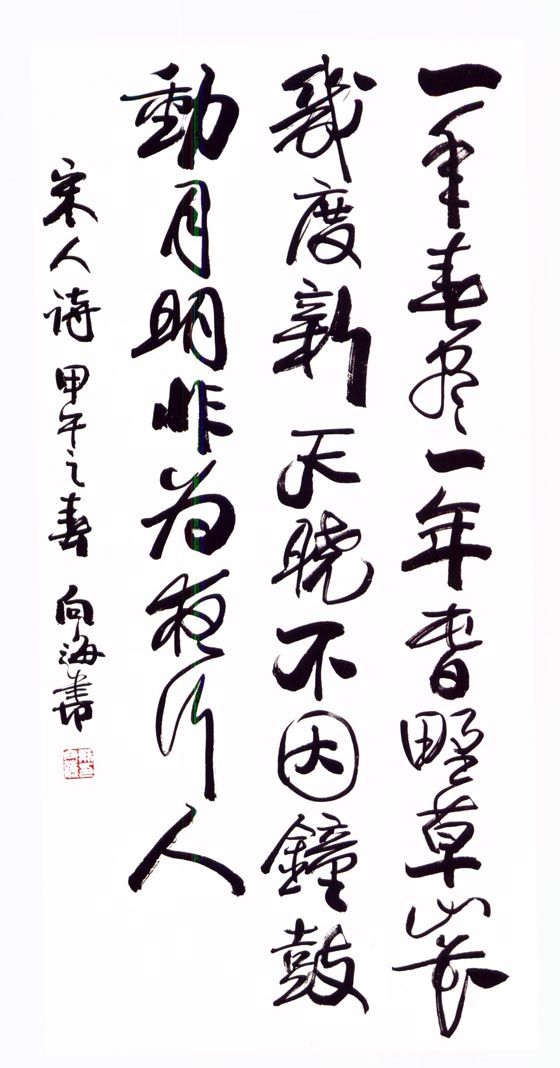 一年春尽一年春野草山花
幾度新天晓不因鐘鼓
動月明非为夜行人
宋人诗 甲午之春 向海書